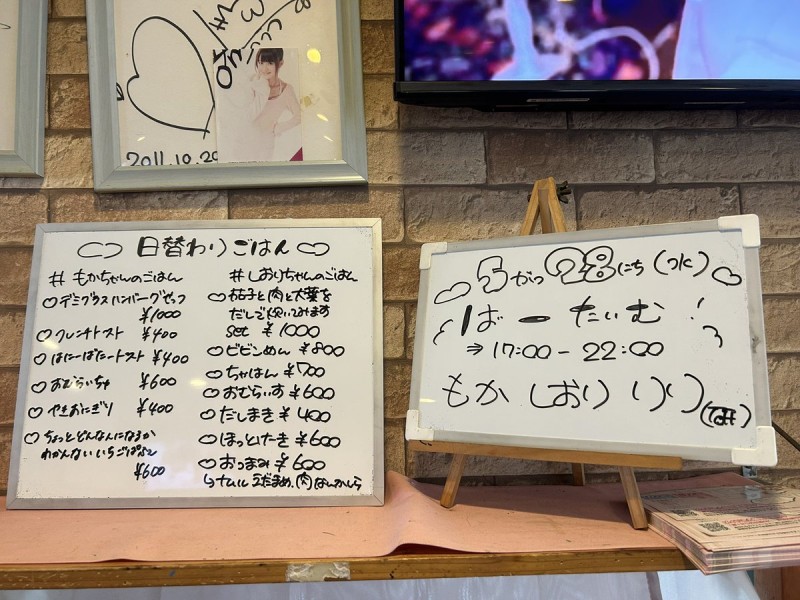 2011.10.29
日替わりごはん
# もかちゃんのごはん
デミグラスハンバーグセット
¥1000
フレンチトースト ¥400
はにーばたートースト ¥400
おむらいちゅ ¥600
やきおにぎり ¥400
ちょっとどんなんになるか
わかんないいちごぱふぇ
¥600
# しおりちゃんのごはん
茄子と肉と大葉を
だしで炊いてみます
set ¥1000
ビビンめん ¥800
ちゃはん ¥700
おむらいす ¥600
だしまき ¥400
ほっとけーき ¥600
おつまみ ¥600
→ナムル えだまめ、肉なんかしら
5がつ28にち (水)
ばーたいむ!
⇒ 17:00 - 22:00
もか しおり りり